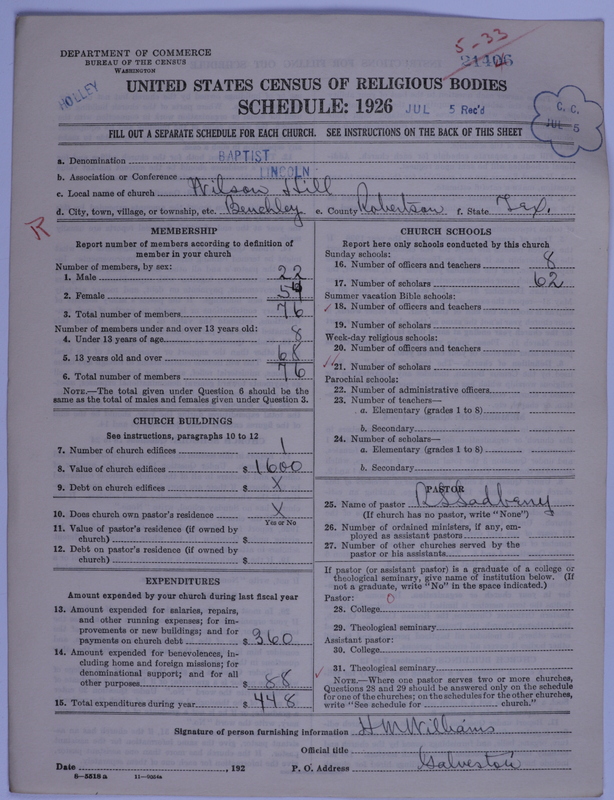 5-33
21406
DEPARTMENT OF COMMERCE
BUREAU OF THE CENSUS
WASHINGTON
HOLLEY
UNITED STATES CENSUS OF RELIGIOUS BODIES
SCHEDULE: 1926 JUL 5 Rec'd
C. C.
JUL 5
FILL OUT A SEPARATE SCHEDULE FOR EACH CHURCH. SEE INSTRUCTIONS ON THE BACK OF THIS SHEET
a. Denomination BAPTIST
b. Association or Conference LINCOLN
c. Local name of church Wilson Hill
d. City, town, village, or township, etc. Benchley e. County Robertson f. State Tex.
R
MEMBERSHIP
Report number of members according to definition of
member in your church
Number of members, by sex:
1. Male 22
2. Female 54
3. Total number of members 76
Number of members under and over 13 years old:
4. Under 13 years of age 8
5. 13 years old and over 68
6. Total number of members 76
NOTE.—The total given under Question 6 should be the
same as the total of males and females given under Question 3.
CHURCH BUILDINGS
See instructions, paragraphs 10 to 12
7. Number of church edifices 1
8. Value of church edifices $ 1600
9. Debt on church edifices $ X
10. Does church own pastor's residence X
Yes or No
11. Value of pastor's residence (if owned by
church) $
12. Debt on pastor's residence (if owned by
church) $
EXPENDITURES
Amount expended by your church during last fiscal year
13. Amount expended for salaries, repairs,
and other running expenses; for im-
provements or new buildings; and for
payments on church debt $ 360
14. Amount expended for benevolences, in-
cluding home and foreign missions; for
denominational support; and for all
other purposes $ 88
15. Total expenditures during year $ 448
CHURCH SCHOOLS
Report here only schools conducted by this church
Sunday schools:
16. Number of officers and teachers 8
17. Number of scholars 62
Summer vacation Bible schools:
18. Number of officers and teachers
19. Number of scholars
Week-day religious schools:
20. Number of officers and teachers
21. Number of scholars
Parochial schools:
22. Number of administrative officers
23. Number of teachers—
a. Elementary (grades 1 to 8)
b. Secondary
24. Number of scholars—
a. Elementary (grades 1 to 8)
b. Secondary
PASTOR
25. Name of pastor
(If church has no pastor, write "None")
26. Number of ordained ministers, if any, em-
ployed as assistant pastors
27. Number of other churches served by the
pastor or his assistants
If pastor (or assistant pastor) is a graduate of a college or
theological seminary, give name of institution below. (If
not a graduate, write "No" in the space indicated.)
Pastor: 0
28. College
29. Theological seminary
Assistant pastor:
30. College
31. Theological seminary
NOTE.—Where one pastor serves two or more churches,
Questions 28 and 29 should be answered only on the schedule
for one of the churches; on the schedules for the other churches,
write "See schedule for church."
Signature of person furnishing information H M Williams
Official title
Date , 192 P. O. Address Galveston
8-5518 a